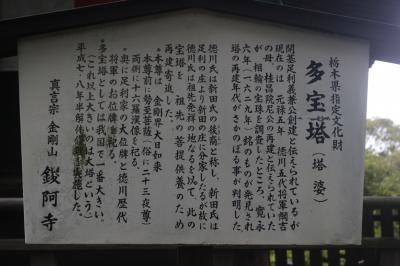 栃木県指定文化財
多宝塔（塔婆）
開基足利義兼公創建と伝えられているが
現在のは、元禄五年、徳川五代将軍綱吉
の母、桂昌院尼公の再建と伝えられていた
が、相輪の宝珠を調査したところ、寛永
六年（一六二九年）銘のものが発見され
塔の再建年代がさかのぼる事が判明した。
徳川氏は新田氏の後裔と称し、新田氏は
足利の庄より新田の庄に分家したるが故に
徳川氏は祖先発祥の地なるを以て、此の
宝塔を 祖先の菩提供養のため
再建寄進した。
・本尊は 金剛界大日如来
本尊前に勢至菩薩（俗に二十三夜尊）
両側に十六羅漢像を祀る。
・奥に足利家の大位牌と徳川歴代
将軍のお位牌を祀る。
・多宝塔としては我国で一番大きい。
（これ以上大きいのは大塔という）
平成七・八年半解体修理を施した。
真言宗 金剛山 鑁阿寺